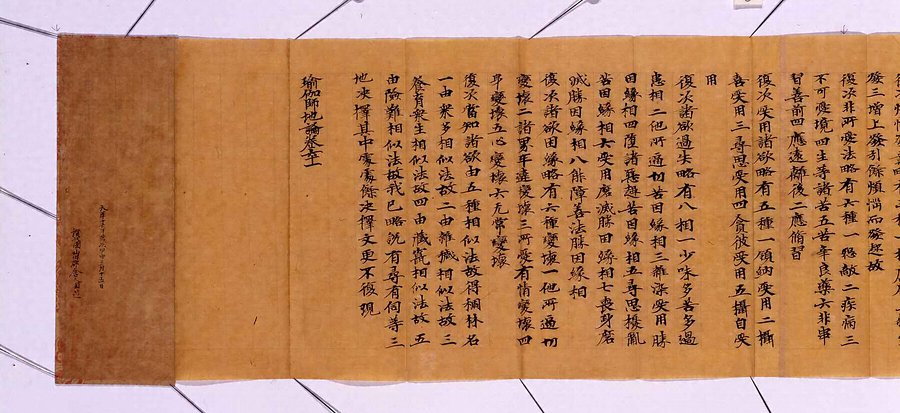 發三增上發引餘煩惱而發起故
復次非所愛法略有六種一怨敵二疾病三
不可愛境四生等諸苦五苦辛良藥六非串
習善前四應遠離後二應脩習
復次受用諸欲略有五種一領納受用二攝
善受用三尋思受用四貪彼受用五攝自受
用
復次諸欲過失略有八相一少味多苦多過
患相二他所逼切苦因緣相三雜染受用勝
因緣相四墮諸惡趣苦因緣相五尋思擾亂
苦因緣相六受用磨滅勝因緣相七喪身磨
滅勝因緣相八能障善法勝因緣相
復次諸欲因緣略有六種變壞一他所逼切
變壞二諸界違變壞三所愛有情變壞四
變壞五心變壞六无常變壞
復次當知諸欲由五種相似法故得稠林名
一由衆多相似法故二由雜穢相似法故三
養育衆生相似法故四由藏竄相似法故五
由險難相似法故我已略說有尋有伺等三
地決擇其中處處餘決擇文更不復現
瑜伽師地論卷六十一